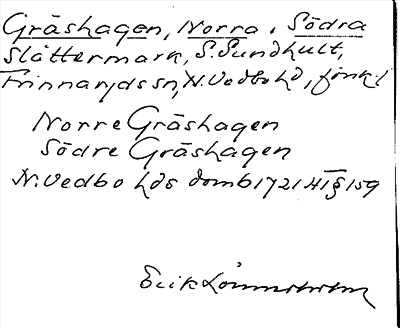 Gräshagen, Norra o. Södra
Slåttermark, S. Sundhult,
Frinnaryds sn, N. Vedbo hd, Jönk. l
Norre Gräshagen
Södre Gräshagen
N. Vedbo hds domb 1721 HT § 159
Erik